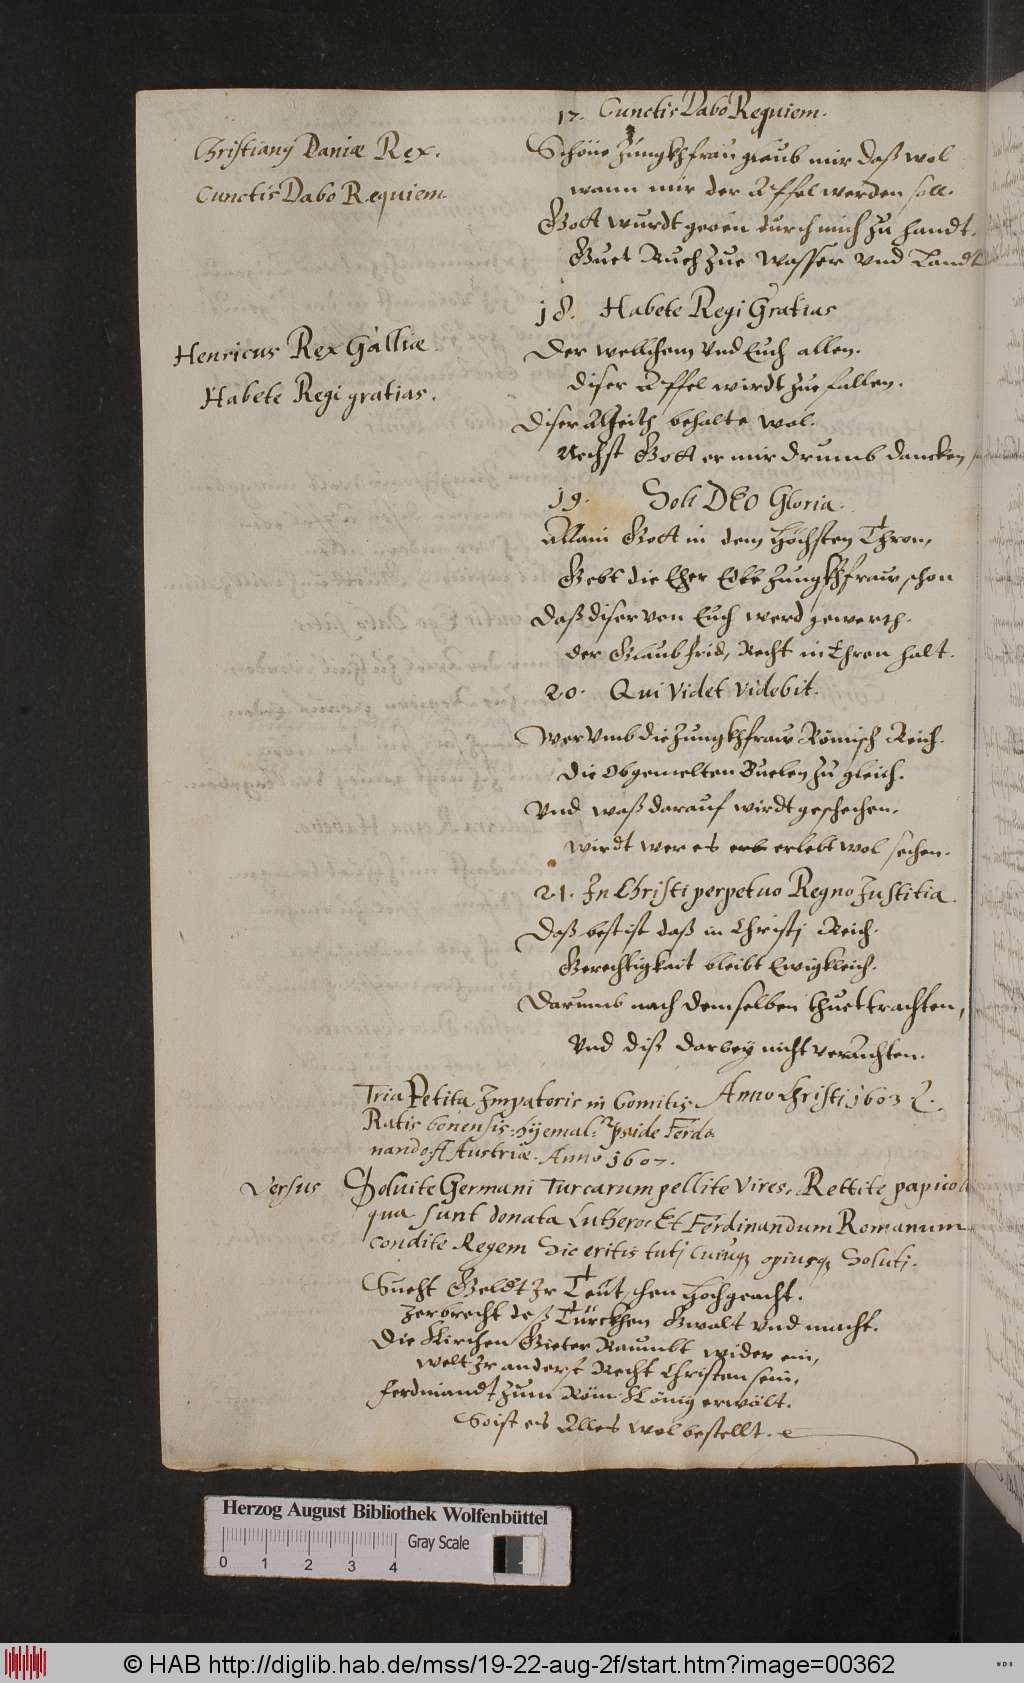 17. Cunctis Dabo Requiem.
Christianq Daniæ Rex.
Cunctis Dabo Requiem.
Schöne Jungkhfrau glaub mir daß wol
wann mir der Apffel werden soll.
Gott wurdt geben durch mich zu handt.
Guet Ruch zue Wasser vnd Landt
18. Habete Regi Gratias
Henricus Rex Galliæ
Habete Regi gratias.
Der wellchem vnd Euch allen.
diser Apffel wirdt zue fallen.
Diser behalte wol.
Nechst Gott er mir drumb dancken
19. Soli DEO Gloria.
Allain Gott in dem Höchsten Thron,
Gebt die Eher Edle Jungkhfraw schon
Daß diser von Euch werd gewerth.
der Glaub frid, Recht in Ehren halt.
20. Qui Videt Videbit.
Wer vmb die Jungkhfraw Römisch Reich.
die Obgemelten Buelen zu gleich.
Vnd waß darauf wirdt geschechen.
wirdt wer es erlebt wol sechen.
21. In Christi perpetuo Regno Justitia.
Daß best ist daß in Christj Reich.
Gerechtigkait bleibt Ewigkleich.
Darumb nach demselben thuet trachten,
Vnd diß darbey nicht verachten.
Tria Petita Impatoris in Comitis Anno Christi 1603
Ratisbonensis: hyemal. pside Ferdi
nando Austriæ. Anno 1607.
Versus Soluite Germani Turcarum pellite Vires, Rettite
qua sunt donata Luthero, Et Ferdinandum Romanum
condite Regem Sic eritis tutj Soluti.
Suecht Geldt Ir Teutschen hochgeacht.
Zerbrecht deß Türckhen Gwalt vnd macht.
Die Kirchen Gieter Raumbt wider ein,
welt Ir anderst Recht Christen sein,
ferdinandt zum Röm König erwölt.
So ist es Alles wol bestellt.
Herzog August Bibliothek Wolfenbüttel
Gray Scale
0 1 2 3 4
© HAB http://diglib.hab.de/mss/19-22-aug-2f/start.htm?image=00362